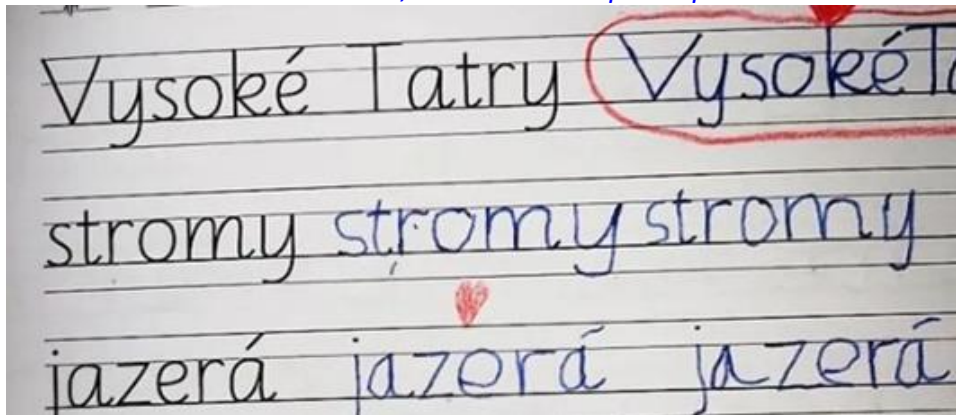 Vysoké Tatry Vysoké
stromy stromy stromy
jazerá jazerá jazerá